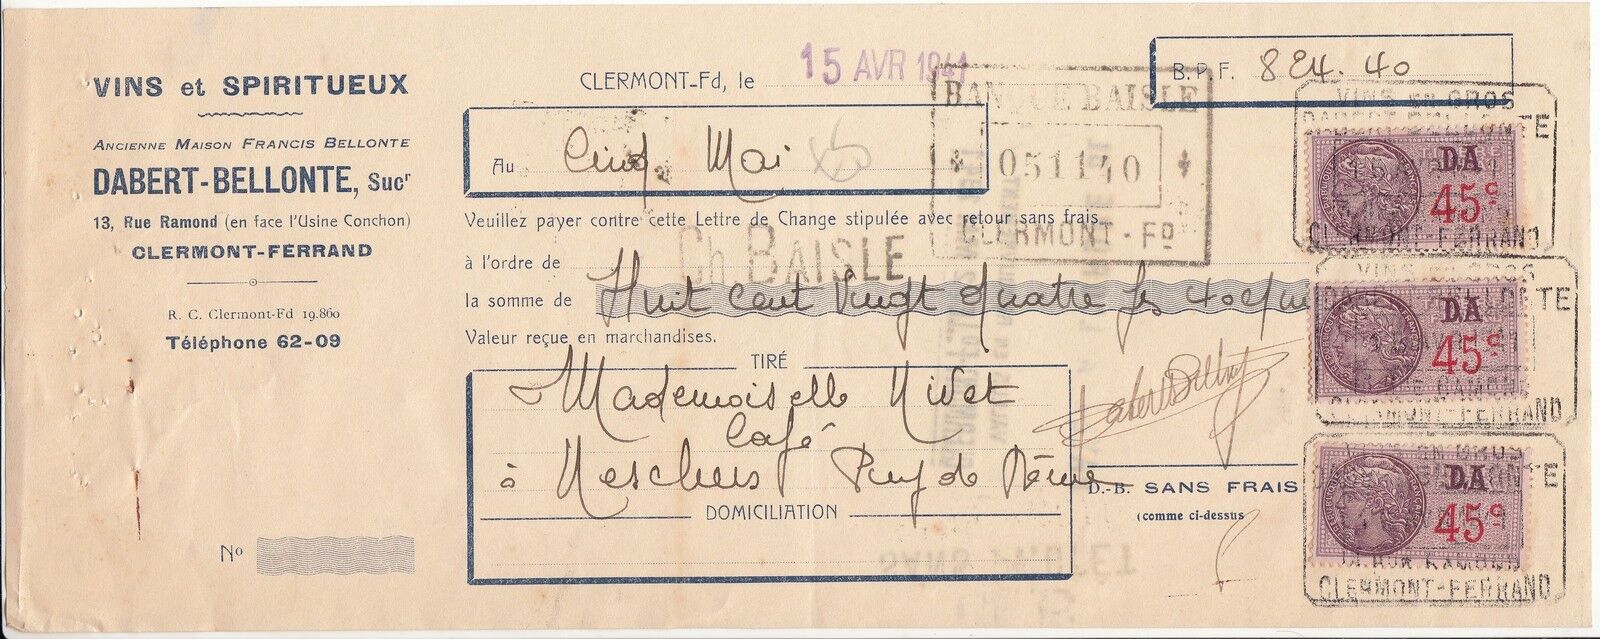 VINS et SPIRITUEUX
ANCIENNE MAISON FRANCIS BELLONTE
DABERT-BELLONTE, Sucr
13, Rue Ramond (en face l'Usine Conchon)
CLERMONT-FERRAND
R. C. Clermont-Fd 19.860
Téléphone 62-09
No
CLERMONT-Fd, le 15 AVR 1941
B.P.F. 824.40
Au Cinq Mai
BANQUE BAISLE
051140
CLERMONT-FD
Veuillez payer contre cette Lettre de Change stipulée avec retour sans frais
à l'ordre de Ch. BAISLE
la somme de Huit cent vingt quatre frs 40
Valeur reçue en marchandises.
TIRÉ
Mademoiselle Nivet
Café
à Neschers Puy de Dôme
DOMICILIATION
D.-B. SANS FRAIS
(comme ci-dessus
VINS EN GROS
DABERT-BELLONTE
DA
45c
CLERMONT-FERRAND
VINS EN GROS
DA
45c
CLERMONT-FERRAND
DA
45c
RUE RAMOND
CLERMONT-FERRAND